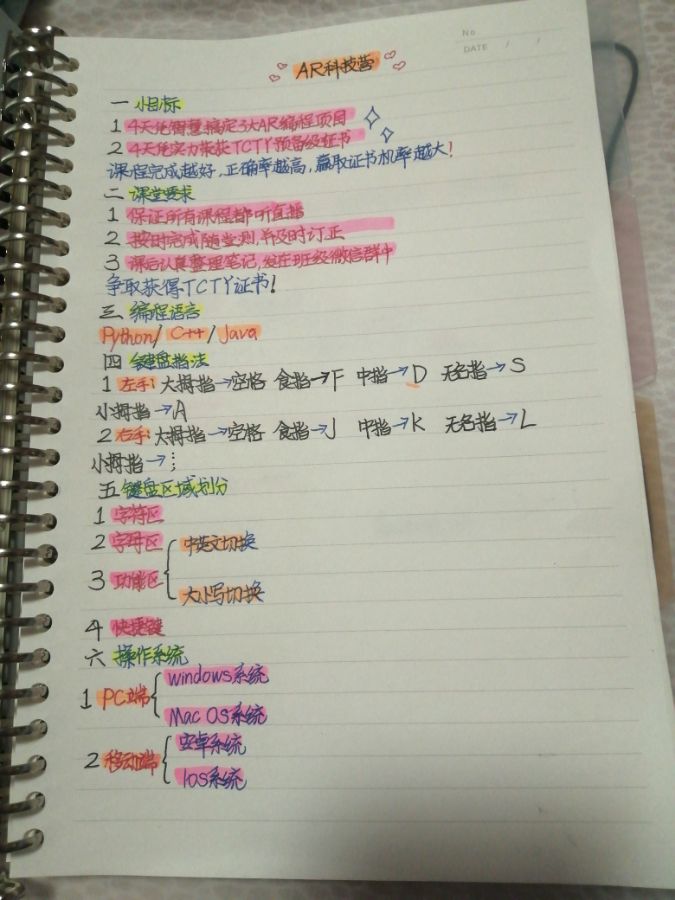 No
DATE / /
AR科技营
一 小目标
1 4天凭智慧搞定3大AR编程项目
2 4天凭实力来获TCTY预备级证书
课程完成越好,正确率越高,赢取证书机率越大!
二 课堂要求
1 保证所有课程都听直播
2 按时完成随堂测,并及时订正
3 课后认真整理笔记,发在班级微信群中
争取获得TCTY证书!
三 编程语言
Python/ C++/Java
四 键盘指法
1 左手:大拇指→空格 食指→F 中指→D 无名指→S
小拇指→A
2 右手:大拇指→空格 食指→J 中指→K 无名指→L
小拇指→;
五 键盘区域划分
1 字符区
2 字母区
中英文切换
3 功能区
大小写切换
4 快捷键
六 操作系统
windows系统
1 PC端
Mac OS系统
安卓系统
2 移动端
Ios系统